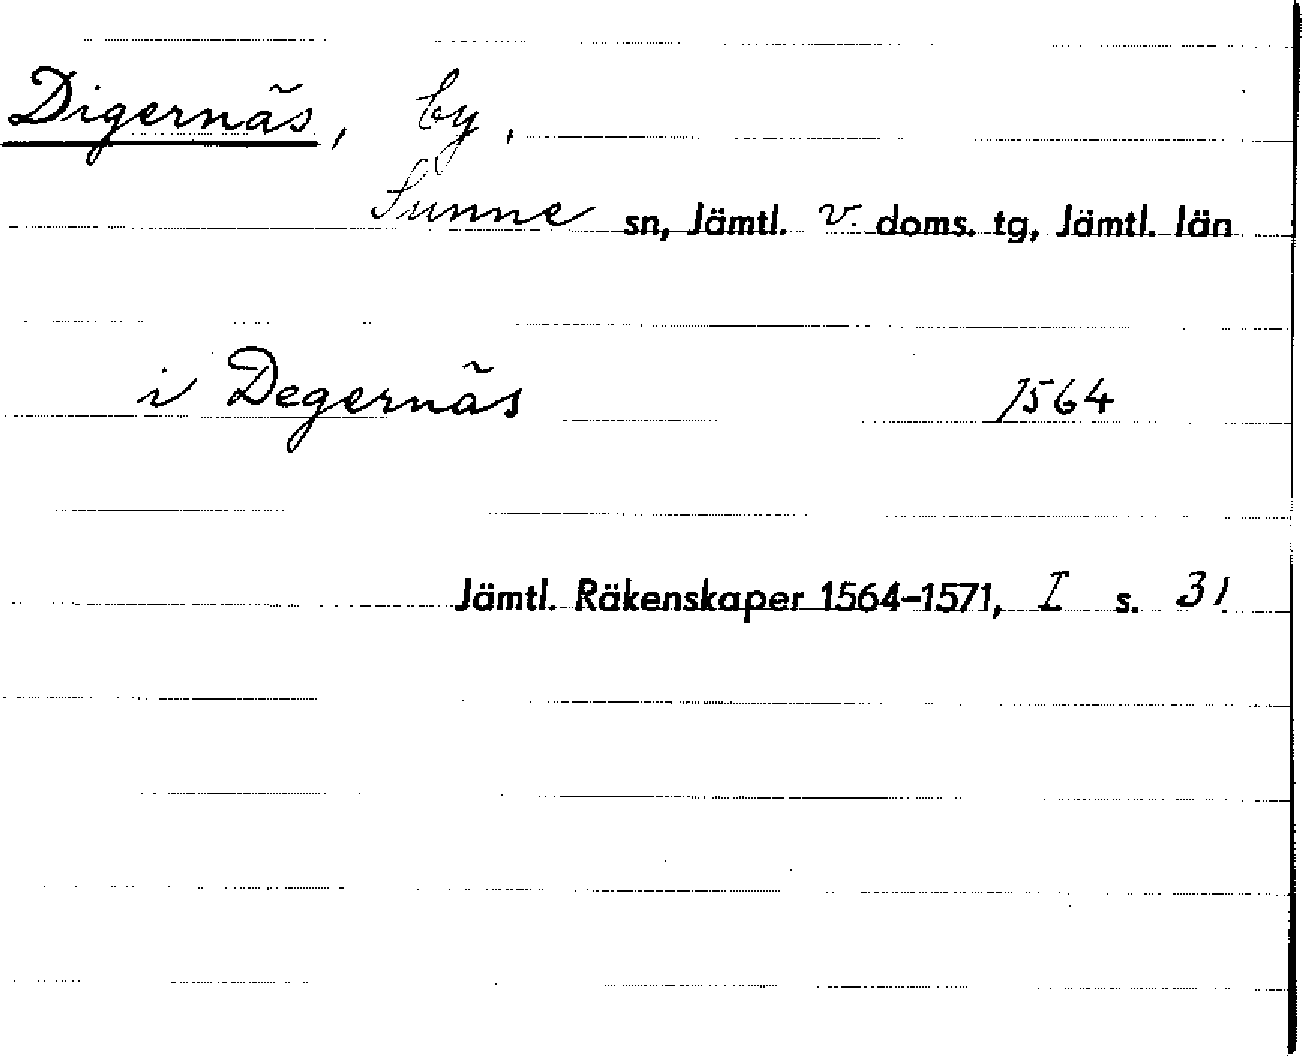 Digernäs, by,
Sunne sn, Jämtl. v. doms. tg, Jämtl. län
i Degernäs 1564
Jämtl. Räkenskaper 1564-1571, I s. 31